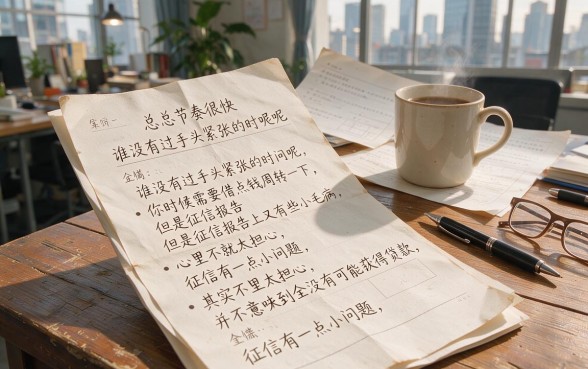 总总节奏很快
谁没有过手头紧张的时呢呢
谁没有过手头紧张的时问呢，
• 你时候需要借点钱周转一下，
但是征信报告
但是征信报告上又有些小毛病，
• 心里不就太担心，
征信有一点小问题，
• 其实不里太担心，
并不意味到全没有可能获得贷款，
征信有一点小问题，